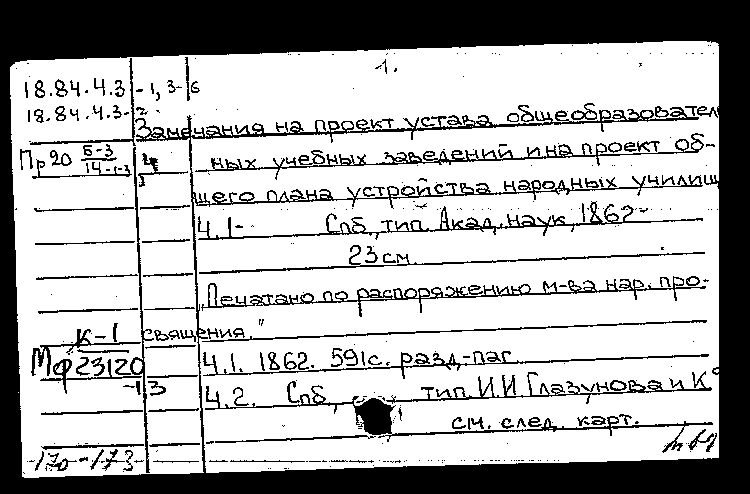 1.
18.84.4.3 - 1, 3-6
18.84.4.3-2
Замечания на проект устава общеобразователь
Пр20 Б-3/14-1-3
ных учебных заведений и на проект об-
щего плана устройства народных училищ
Ч.1- Спб, тип. Акад. наук, 1862-
23 см.
"Печатано по распоряжению м-ва нар. про-
священия."
К-1
Мф 23120
-1,3
Ч.1. 1862. 591с. разд-паг.
Ч.2. Спб, тип. И.И. Глазунова и К°
см. след. карт.
170-173